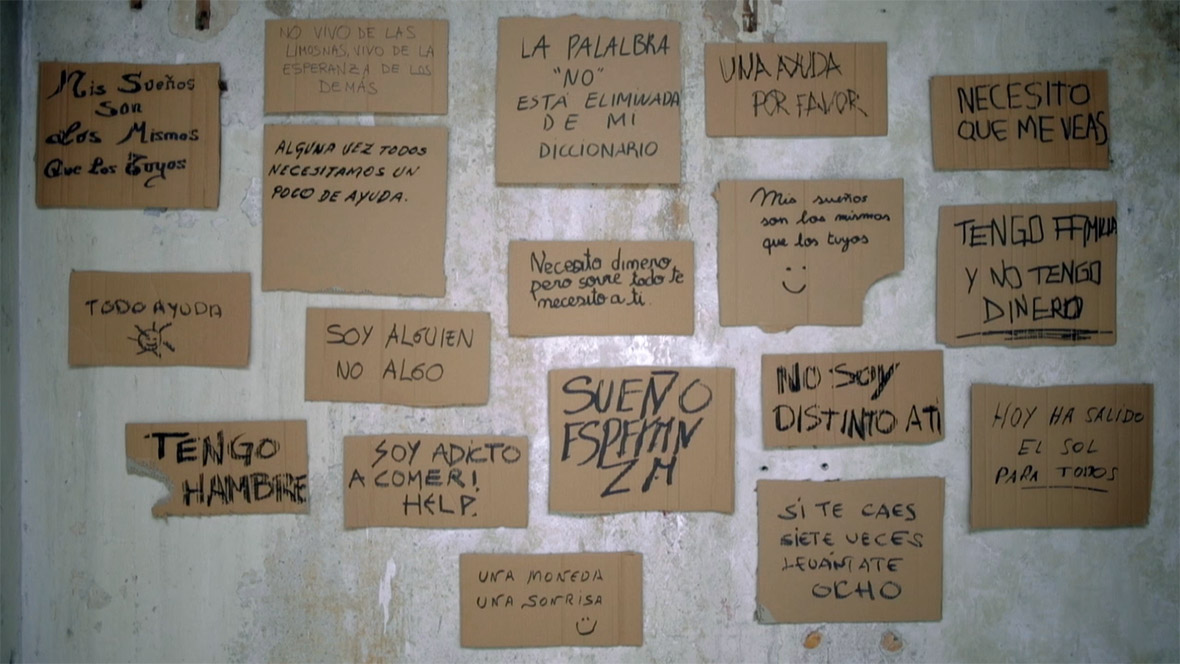 Mis Sueños
Son
Los Mismos
Que Los Tuyos
NO VIVO DE LAS
LIMOSNAS, VIVO DE LA
ESPERANZA DE LOS
DEMÁS
ALGUNA VEZ TODOS
NECESITAMOS UN
POCO DE AYUDA.
LA PALALBRA
"NO"
ESTÁ ELIMINADA
DE MI
DICCIONARIO
UNA AYUDA
POR FAVOR
NECESITO
QUE ME VEAS
Mis sueños
son los mismos
que los tuyos
TENGO FFMILIA
Y NO TENGO
DINERO
Necesito dinero,
pero sovre todo te
necesito a ti.
TODO AYUDA
SOY ALGUIEN
NO ALGO
SUEÑO
ESPERAN
ZA
NO SOY
DISTINTO A TI
HOY HA SALIDO
EL SOL
PARA TODOS
TENGO
HAMBRE
SOY ADICTO
A COMER!
HELP.
SI TE CAES
SIETE VECES
LEVÁNTATE
OCHO
UNA MONEDA
UNA SONRISA